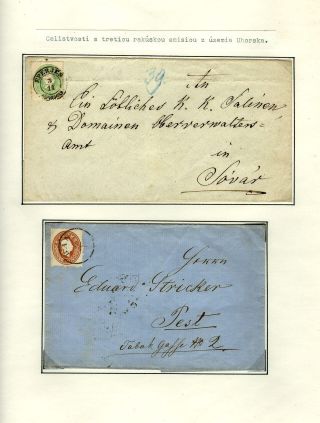 Celistvosti s treťou rakúskou emisiou z územia Uhorska.
EPERJES
39.
An
Ein Löbliches K. K. Salinen
& Domainen Oberverwalters-
Amt
in
Sóvár
Herrn
Eduard Stricker
Pest
Tabak Gasse № 2